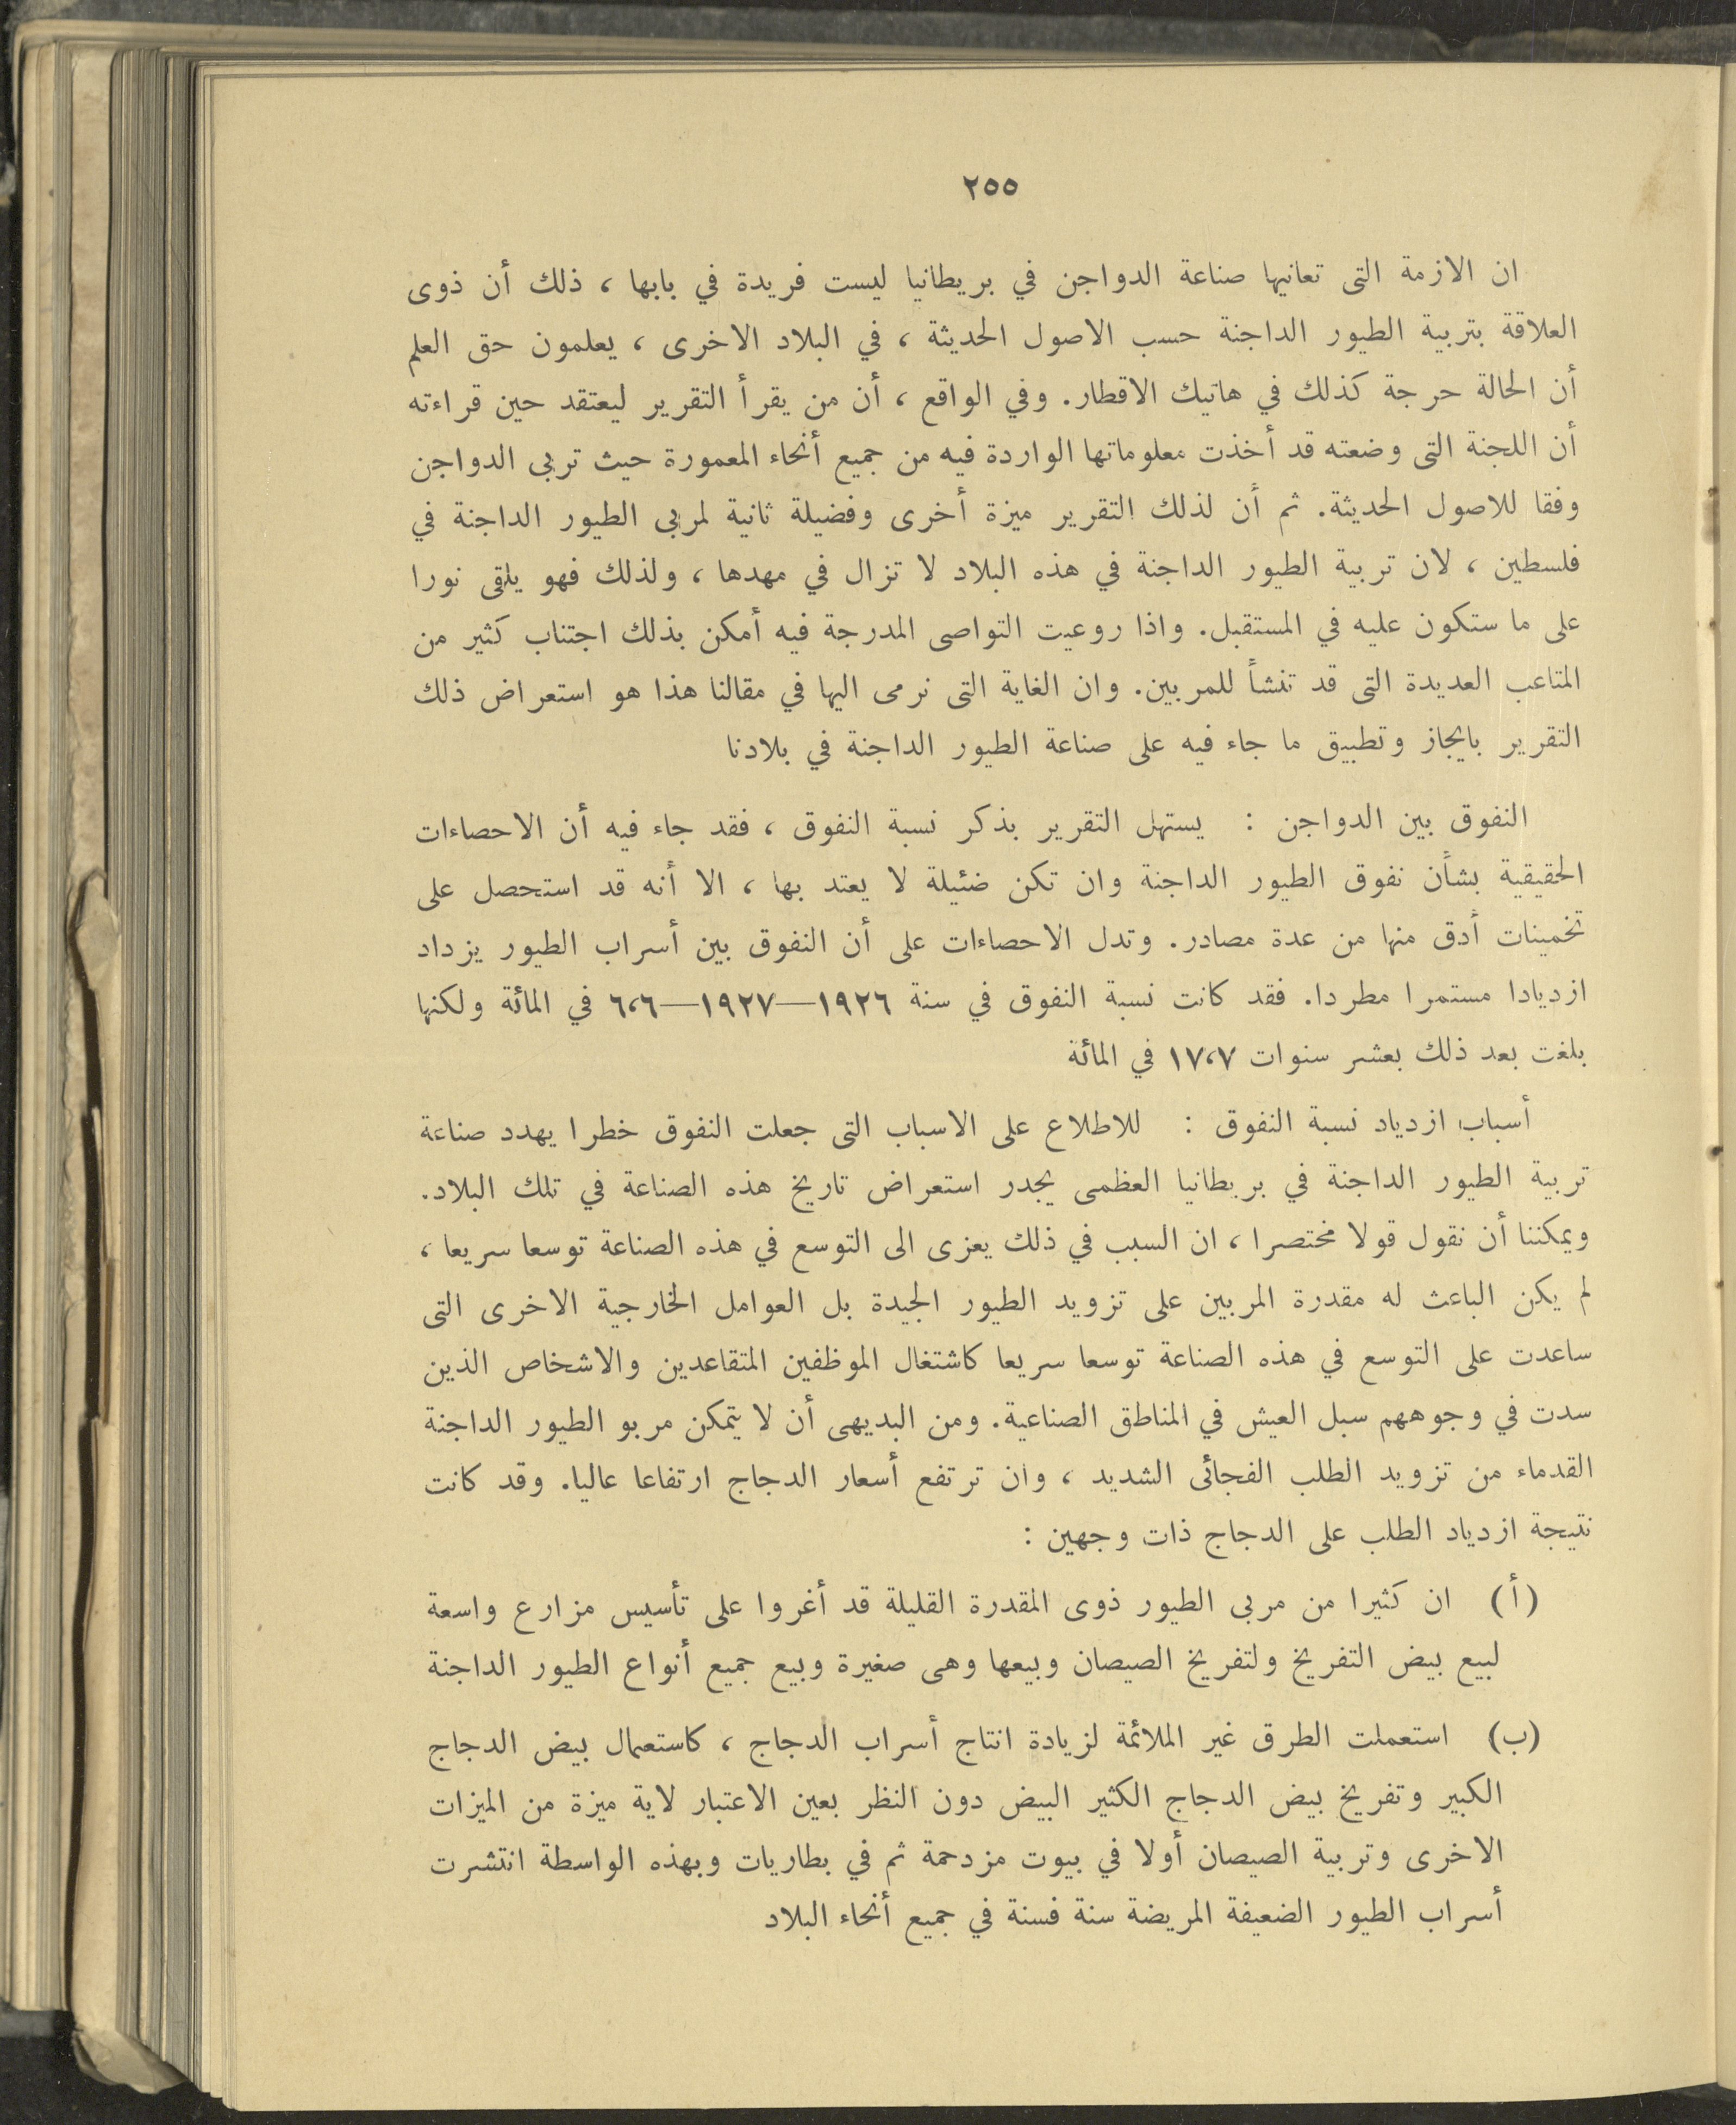 ٢٥٥
ان الازمة التى تعانيها صناعة الدواجن في بريطانيا ليست فريدة في بابها ، ذلك أن ذوى
العلاقة بتربية الطيور الداجنة حسب الاصول الحديثة ، في البلاد الاخرى ، يعلمون حق العلم
أن الحالة حرجة كذلك في هاتيك الاقطار. وفي الواقع ، أن من يقرأ التقرير ليعتقد حين قراءته
أن اللجنة التى وضعته قد أخذت معلوماتها الواردة فيه من جميع أنحاء المعمورة حيث تربى الدواجن
وفقا للاصول الحديثة. ثم أن لذلك التقرير ميزة أخرى وفضيلة ثانية لمربى الطيور الداجنة في
فلسطين ، لان تربية الطيور الداجنة في هذه البلاد لا تزال في مهدها ، ولذلك فهو يلقى نورا
على ما ستكون عليه في المستقبل. واذا روعيت التواصى المدرجة فيه أمكن بذلك اجتناب كثير من
المتاعب العديدة التى قد تنشأ للمربين. وان الغاية التى نرمى اليها في مقالنا هذا هو استعراض ذلك
التقرير بايجاز وتطبيق ما جاء فيه على صناعة الطيور الداجنة في بلادنا
النفوق بين الدواجن : يستهل التقرير بذكر نسبة النفوق ، فقد جاء فيه أن الاحصاءات
الحقيقية بشأن نفوق الطيور الداجنة وان تكن ضئيلة لا يعتد بها ، الا أنه قد استحصل على
تخمينات أدق منها من عدة مصادر. وتدل الاحصاءات على أن النفوق بين أسراب الطيور يزداد
ازديادا مستمرا مطردا. فقد كانت نسبة النفوق في سنة ١٩٢٦—١٩٢٧—٦،٦ في المائة ولكنها
بلغت بعد ذلك بعشر سنوات ١٧،٧ في المائة
أسباب ازدياد نسبة النفوق : للاطلاع على الاسباب التى جعلت النفوق خطرا يهدد صناعة
تربية الطيور الداجنة في بريطانيا العظمى يجدر استعراض تاريخ هذه الصناعة في تلك البلاد.
ويمكننا أن نقول قولا مختصرا ، ان السبب في ذلك يعزى الى التوسع في هذه الصناعة توسعا سريعا ،
لم يكن الباعث له مقدرة المربين على تزويد الطيور الجيدة بل العوامل الخارجية الاخرى التى
ساعدت على التوسع في هذه الصناعة توسعا سريعا كاشتغال الموظفين المتقاعدين والاشخاص الذين
سدت في وجوههم سبل العيش في المناطق الصناعية. ومن البديهى أن لا يتمكن مربو الطيور الداجنة
القدماء من تزويد الطلب الفجائى الشديد ، وان ترتفع أسعار الدجاج ارتفاعا عاليا. وقد كانت
نتيجة ازدياد الطلب على الدجاج ذات وجهين :
(أ) ان كثيرا من مربى الطيور ذوى المقدرة القليلة قد أغروا على تأسيس مزارع واسعة
لبيع بيض التفريخ ولتفريخ الصيصان وبيعها وهى صغيرة وبيع جميع أنواع الطيور الداجنة
(ب) استعملت الطرق غير الملائمة لزيادة انتاج أسراب الدجاج ، كاستعمال بيض الدجاج
الكبير وتفريخ بيض الدجاج الكثير البيض دون النظر بعين الاعتبار لاية ميزة من الميزات
الاخرى وتربية الصيصان أولا في بيوت مزدحمة ثم في بطاريات وبهذه الواسطة انتشرت
أسراب الطيور الضعيفة المريضة سنة فسنة في جميع أنحاء البلاد